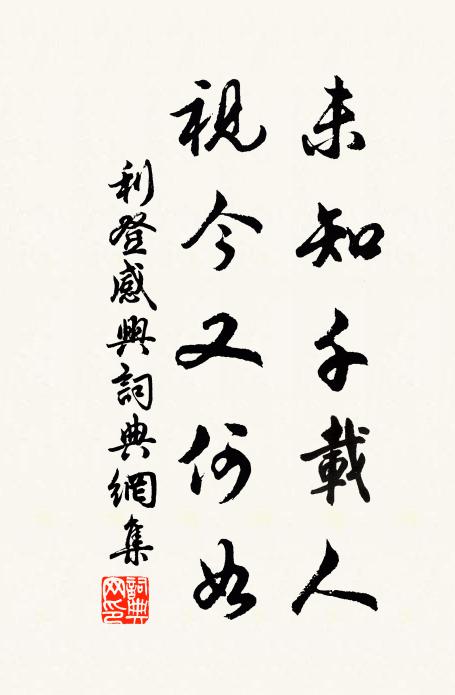 未知千載人
視今又何如
利登感興詞典網集
詞典网印